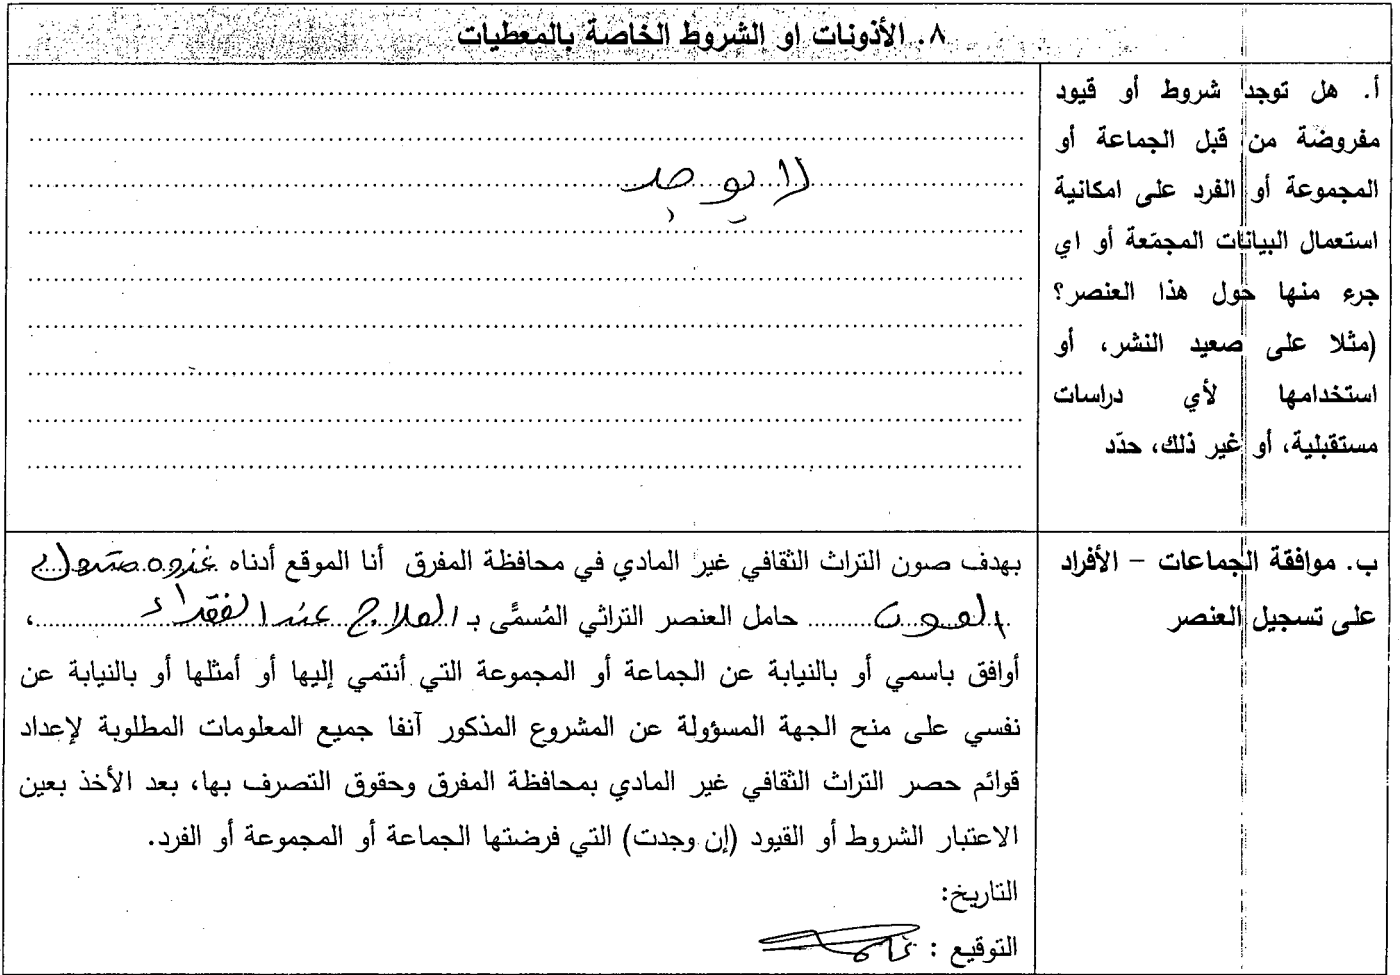 ٨. الأذونات او الشروط الخاصة بالمعطيات
أ. هل توجد شروط أو قيود
مفروضة من قبل الجماعة أو
المجموعة أو الفرد على امكانية
استعمال البيانات المجمّعة أو اي
جرء منها حول هذا العنصر؟
(مثلا على صعيد النشر، أو
استخدامها لأي دراسات
مستقبلية، أو غير ذلك، حدّد
لا يوجد
ب. موافقة الجماعات – الأفراد
على تسجيل العنصر
بهدف صون التراث الثقافي غير المادي في محافظة المفرق أنا الموقع أدناه
العون حامل العنصر التراثي المُسمَّى بـ العلاج عند الفقراء ،
أوافق باسمي أو بالنيابة عن الجماعة أو المجموعة التي أنتمي إليها أو أمثلها أو بالنيابة عن
نفسي على منح الجهة المسؤولة عن المشروع المذكور آنفا جميع المعلومات المطلوبة لإعداد
قوائم حصر التراث الثقافي غير المادي بمحافظة المفرق وحقوق التصرف بها، بعد الأخذ بعين
الاعتبار الشروط أو القيود (إن وجدت) التي فرضتها الجماعة أو المجموعة أو الفرد.
التاريخ:
التوقيع :